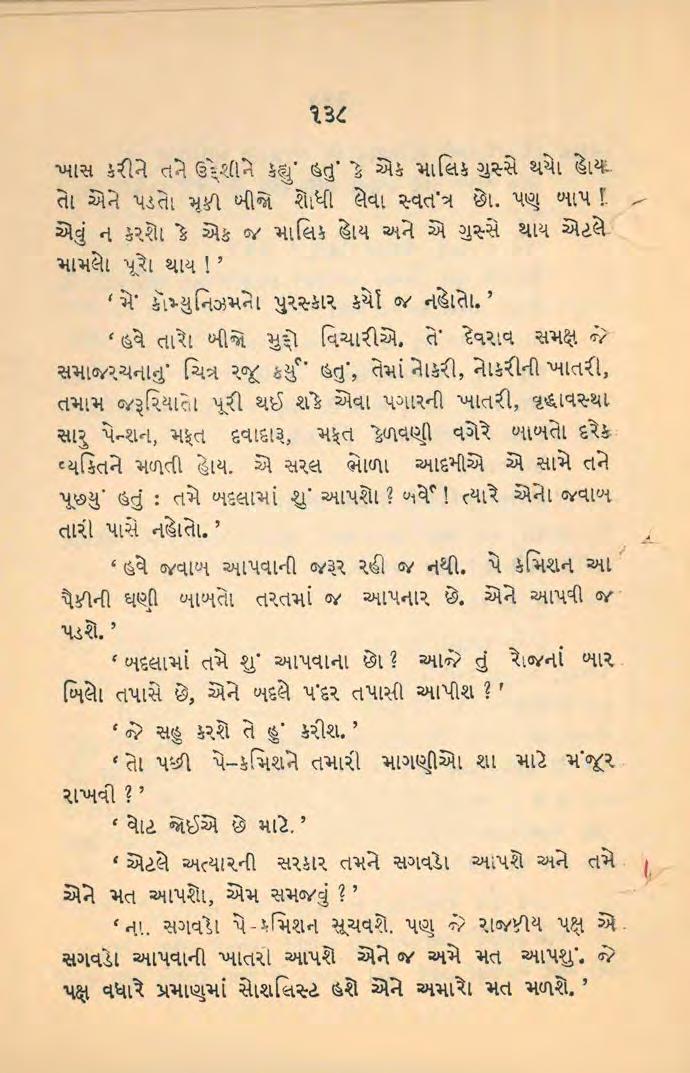 ૧૩૮
ખાસ કરીને તને ઉદ્દેશીને કહ્યું હતું કે એક માલિક ગુસ્સે થયો હોય
તો એને પડતો મૂકી બીજો શોધી લેવા સ્વતંત્ર છો. પણ બાપ !
એવું ન કરશો કે એક જ માલિક હોય અને એ ગુસ્સે થાય એટલે
મામલો પૂરો થાય ! ’
‘ મેં કૉમ્યુનિઝમનો પુરસ્કાર કર્યો જ નહોતો. ’
‘ હવે તારો બીજો મુદ્દો વિચારીએ. તેં દેવરાવ સમક્ષ જે
સમાજરચનાનું ચિત્ર રજૂ કર્યું હતું, તેમાં નોકરી, નોકરીની ખાતરી,
તમામ જરૂરિયાતો પૂરી થઈ શકે એવા પગારની ખાતરી, વૃદ્ધાવસ્થા
સારુ પેન્શન, મફત દવાદારૂ, મફત કેળવણી વગેરે બાબતો દરેક
વ્યકિતને મળતી હોય. એ સરલ ભોળા આદમીએ એ સામે તને
પૂછયું હતું : તમે બદલામાં શું આપશો ? બર્વે ! ત્યારે એનો જવાબ
તારી પાસે નહોતો. ’
‘ હવે જવાબ આપવાની જરૂર રહી જ નથી. પે કમિશન આ
પૈકીની ઘણી બાબતો તરતમાં જ આપનાર છે. એને આપવી જ
પડશે. ’
‘ બદલામાં તમે શું આપવાના છો ? આજે તું રોજનાં બાર
બિલો તપાસે છે, એને બદલે પંદર તપાસી આપીશ ? ’
‘ જે સહુ કરશે તે હું કરીશ. ’
‘ તો પછી પે–કમિશને તમારી માગણીઓ શા માટે મંજૂર
રાખવી ? ’
‘ વોટ જોઈએ છે માટે. ’
‘ એટલે અત્યારની સરકાર તમને સગવડો આપશે અને તમે
એને મત આપશો, એમ સમજવું ? ’
‘ ના. સગવડો પે-કમિશન સૂચવશે. પણ જે રાજકીય પક્ષ એ
સગવડો આપવાની ખાતરી આપશે એને જ અમે મત આપશું. જે
પક્ષ વધારે પ્રમાણમાં સોશલિસ્ટ હશે એને અમારો મત મળશે. ’